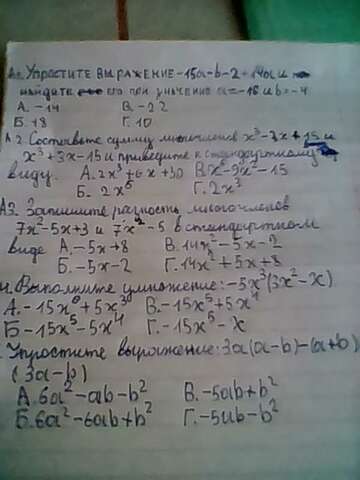 А1. Упростите выражение -15a-b-2+14a и
найдите его при значение a=-16 и b=-4
А. -14 В. -22
Б. 18 Г. 10
А2. Составьте сумму многочленов x³-3x+15 и
x³+3x-15 и приведите к стандартному
виду. А. 2x³+6x+30 В. x⁶-9x²-15
Б. 2x⁶ Г. 2x³
А3. Запишите разность многочленов
7x²-5x+3 и 7x²-5 в стандартном
виде А. -5x+8 В. 14x²-5x-2
Б. -5x-2 Г. 14x²+5x+8
4. Выполните умножение: -5x³(3x²-x)
А. -15x⁶+5x³ В. -15x⁵+5x⁴
Б. -15x⁵-5x⁴ Г. -15x⁵-x
Упростите выражение: 3a(a-b)-(a+b)
(3a-b)
А. 6a²-ab-b² В. -5ab+b²
Б. 6a²-6ab+b² Г. -5ab-b²